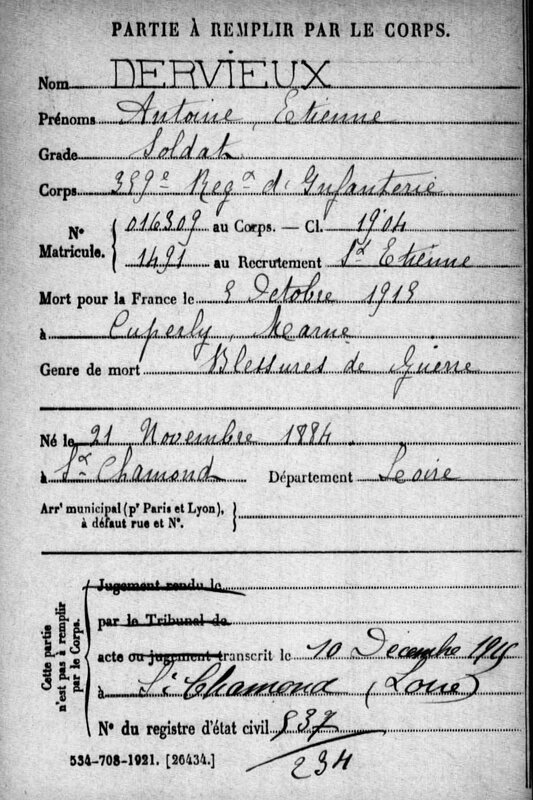 PARTIE À REMPLIR PAR LE CORPS.
Nom DERVIEUX
Prénoms Antoine, Etienne
Grade Soldat
Corps 359e Regt d'Infanterie
No Matricule. { 016309 au Corps. — Cl. 1904
1491 au Recrutement St Etienne
Mort pour la France le Octobre 1915
à Cuperly, Marne
Genre de mort Blessures de Guerre
Né le 21 Novembre 1884.
à St Chamond Département Loire
Arrt municipal (pr Paris et Lyon), à défaut rue et No. }
Cette partie n'est pas à remplir par le Corps.
Jugement rendu le
par le Tribunal de
acte ou jugement transcrit le 10 Décembre 1915
à St Chamond (Loire)
No du registre d'état civil 537
234
534-708-1921. [26434.]